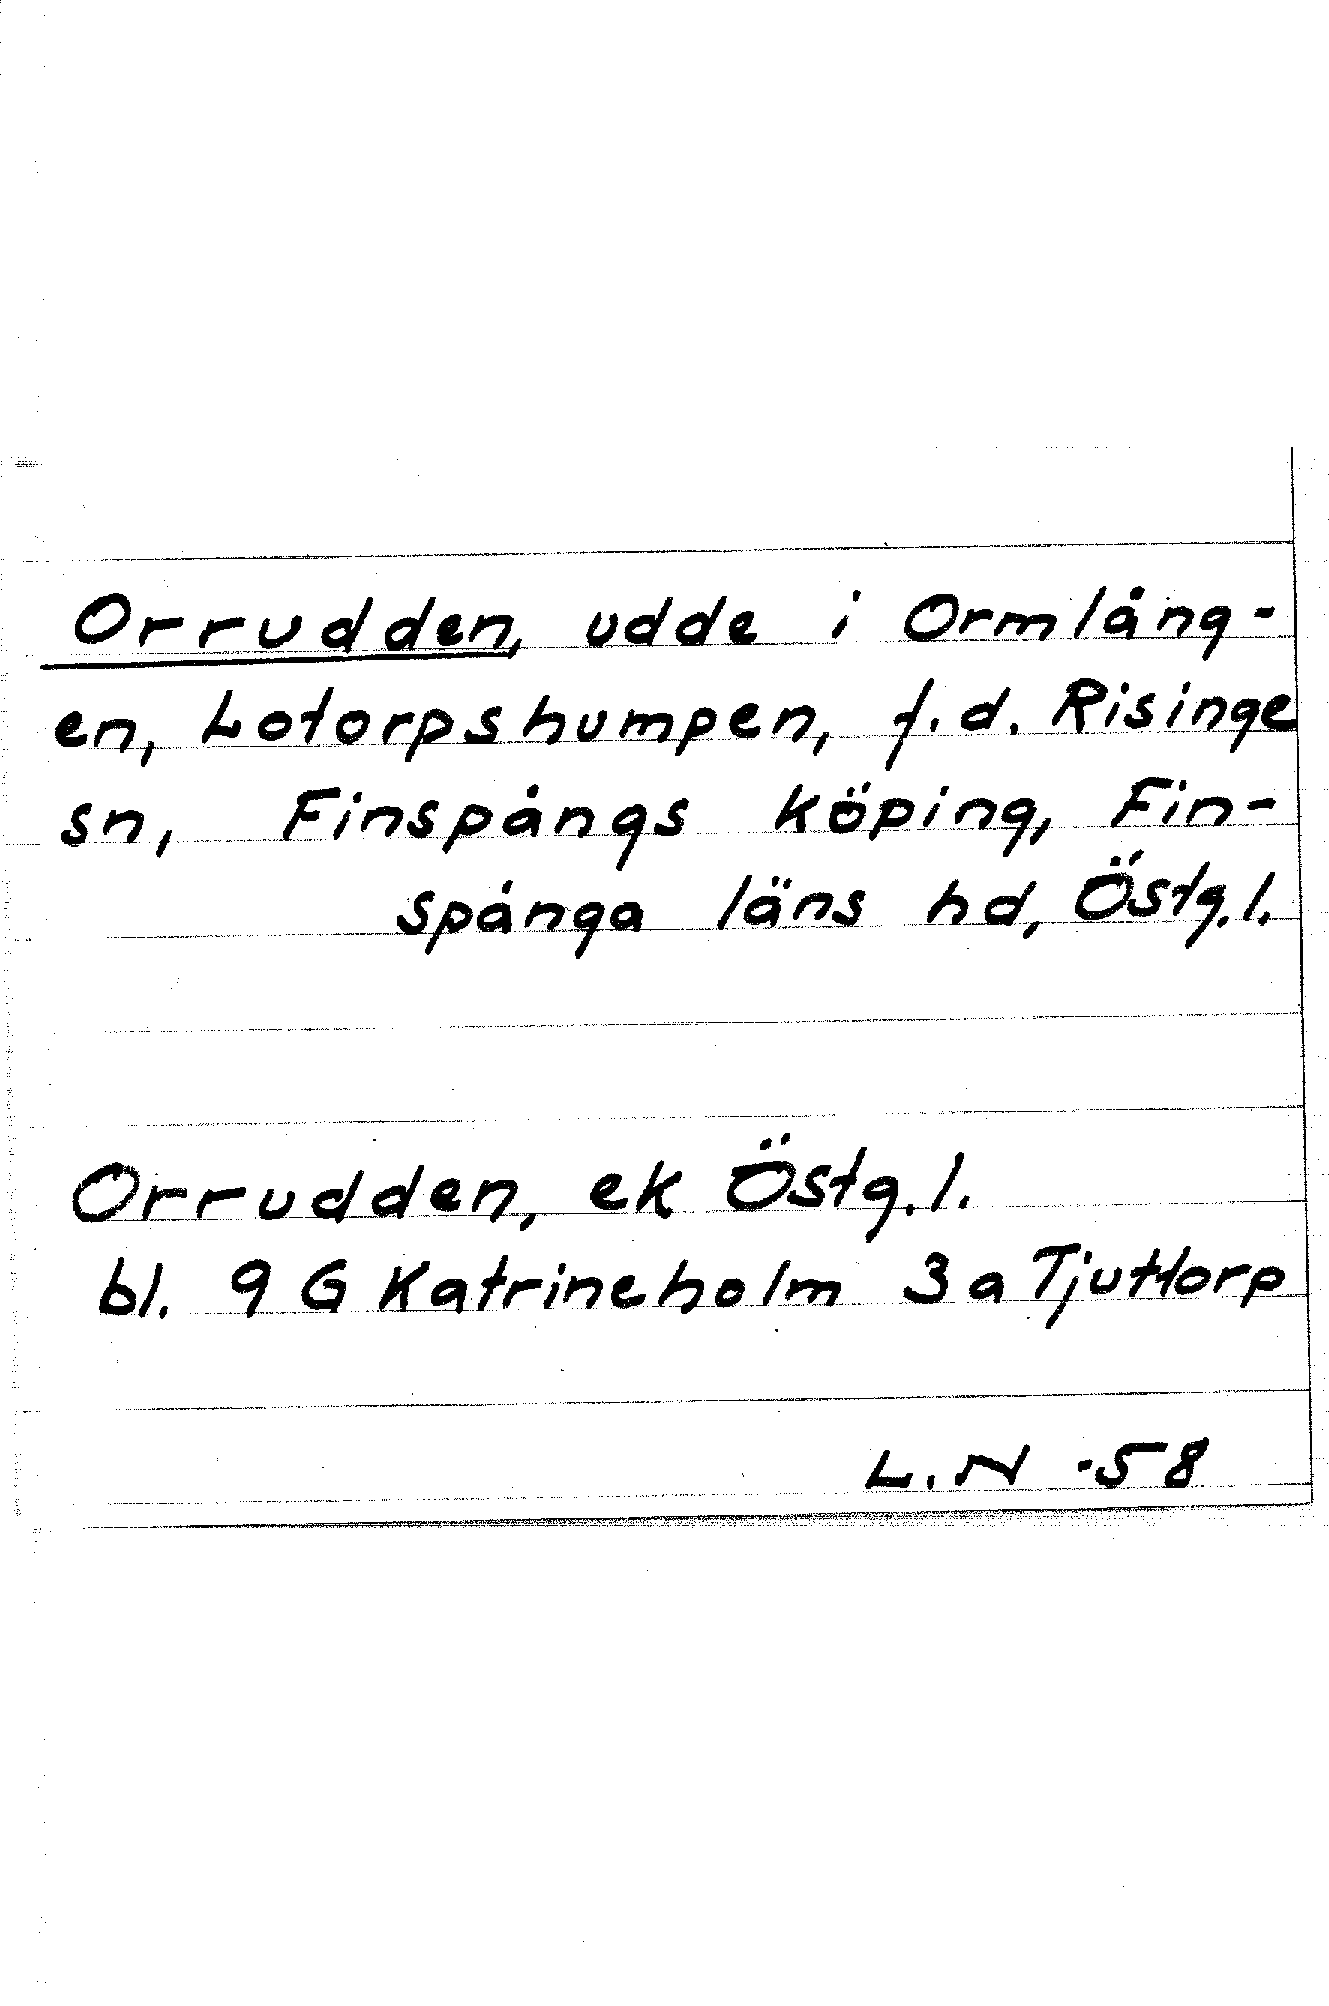 Orrudden, udde i Ormlång-
en, Lotorpshumpen, f.d. Risinge
sn, Finspångs köping, Fin-
spånga läns hd, Östg.l.
Orrudden, ek Östg.l.
bl. 9 G Katrineholm 3 a Tjuttorp
L.N -58